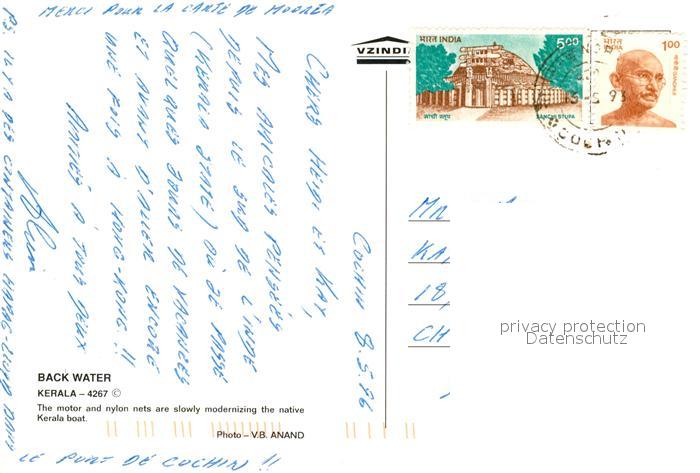 MERCI POUR LA CARTE DE MOOREA
COCHIN 8.5.96
CHERS HEIDI ET KAY,
MES AMICALES PENSÉES
DEPUIS LE SUD DE L'INDE
(KERALA STATE) OÙ JE PASSE
QUELQUES JOURS DE VACANCES
ET AVANT D'ALLER ENCORE
UNE FOIS À HONG-KONG !!
AMITIÉS À TOUS DEUX
PS IL Y A DES CONTAINERS HAPAG-LLOYD DANS
LE PORT DE COCHIN !!
BACK WATER
KERALA – 4267 ©
The motor and nylon nets are slowly modernizing the native
Kerala boat.
Photo – V.B. ANAND
VZINDI
भारत INDIA 5.00
सांची स्तूप SANCHI STUPA
भारत
INDIA
1.00
गांधी GANDHI
MR
KA
18,
CH
privacy protection
Datenschutz